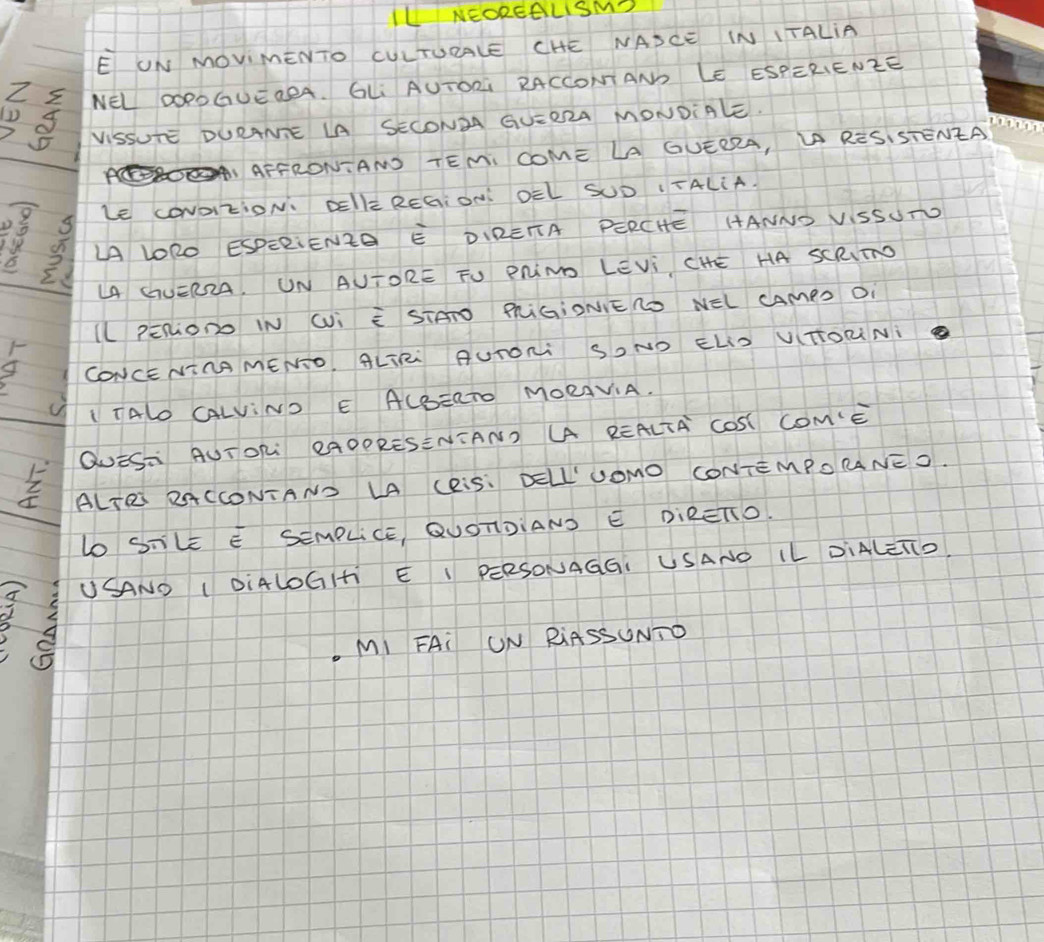 IL NEOREALISMO
È UN MOVIMENTO CULTURALE CHE NASCE IN ITALIA
NEL DOPOGUERRA. GLI AUTORI RACCONTANO LE ESPERIENZE
VISSUTE DURANTE LA SECONDA GUERRA MONDIALE.
AFFRONTANO TEMI COME LA GUERRA, LA RESISTENZA
LE CONDIZIONI DELLE REGIONI DEL SUD ITALIA.
LA LORO ESPERIENZA È DIRETTA PERCHÉ HANNO VISSUTO
LA GUERRA. UN AUTORE FU PRIMO LEVI, CHE HA SCRITTO
IL PERIODO IN CUI È STATO PRIGIONIERO NEL CAMPO DI
CONCENTRAMENTO. ALTRI AUTORI SONO ELIO VITTORINI
ITALO CALVINO E ALBERTO MORAVIA.
QUESTI AUTORI RAPPRESENTANO LA REALTÀ COSÌ COM'È
ALTRI RACCONTANO LA CRISI DELL'UOMO CONTEMPORANEO.
LO STILE È SEMPLICE, QUOTIDIANO E DIRETTO.
USANO I DIALOGHI E I PERSONAGGI USANO IL DIALETTO.
. MI FAI UN RIASSUNTO
VEN
GRAM
MUSICA
ANT.